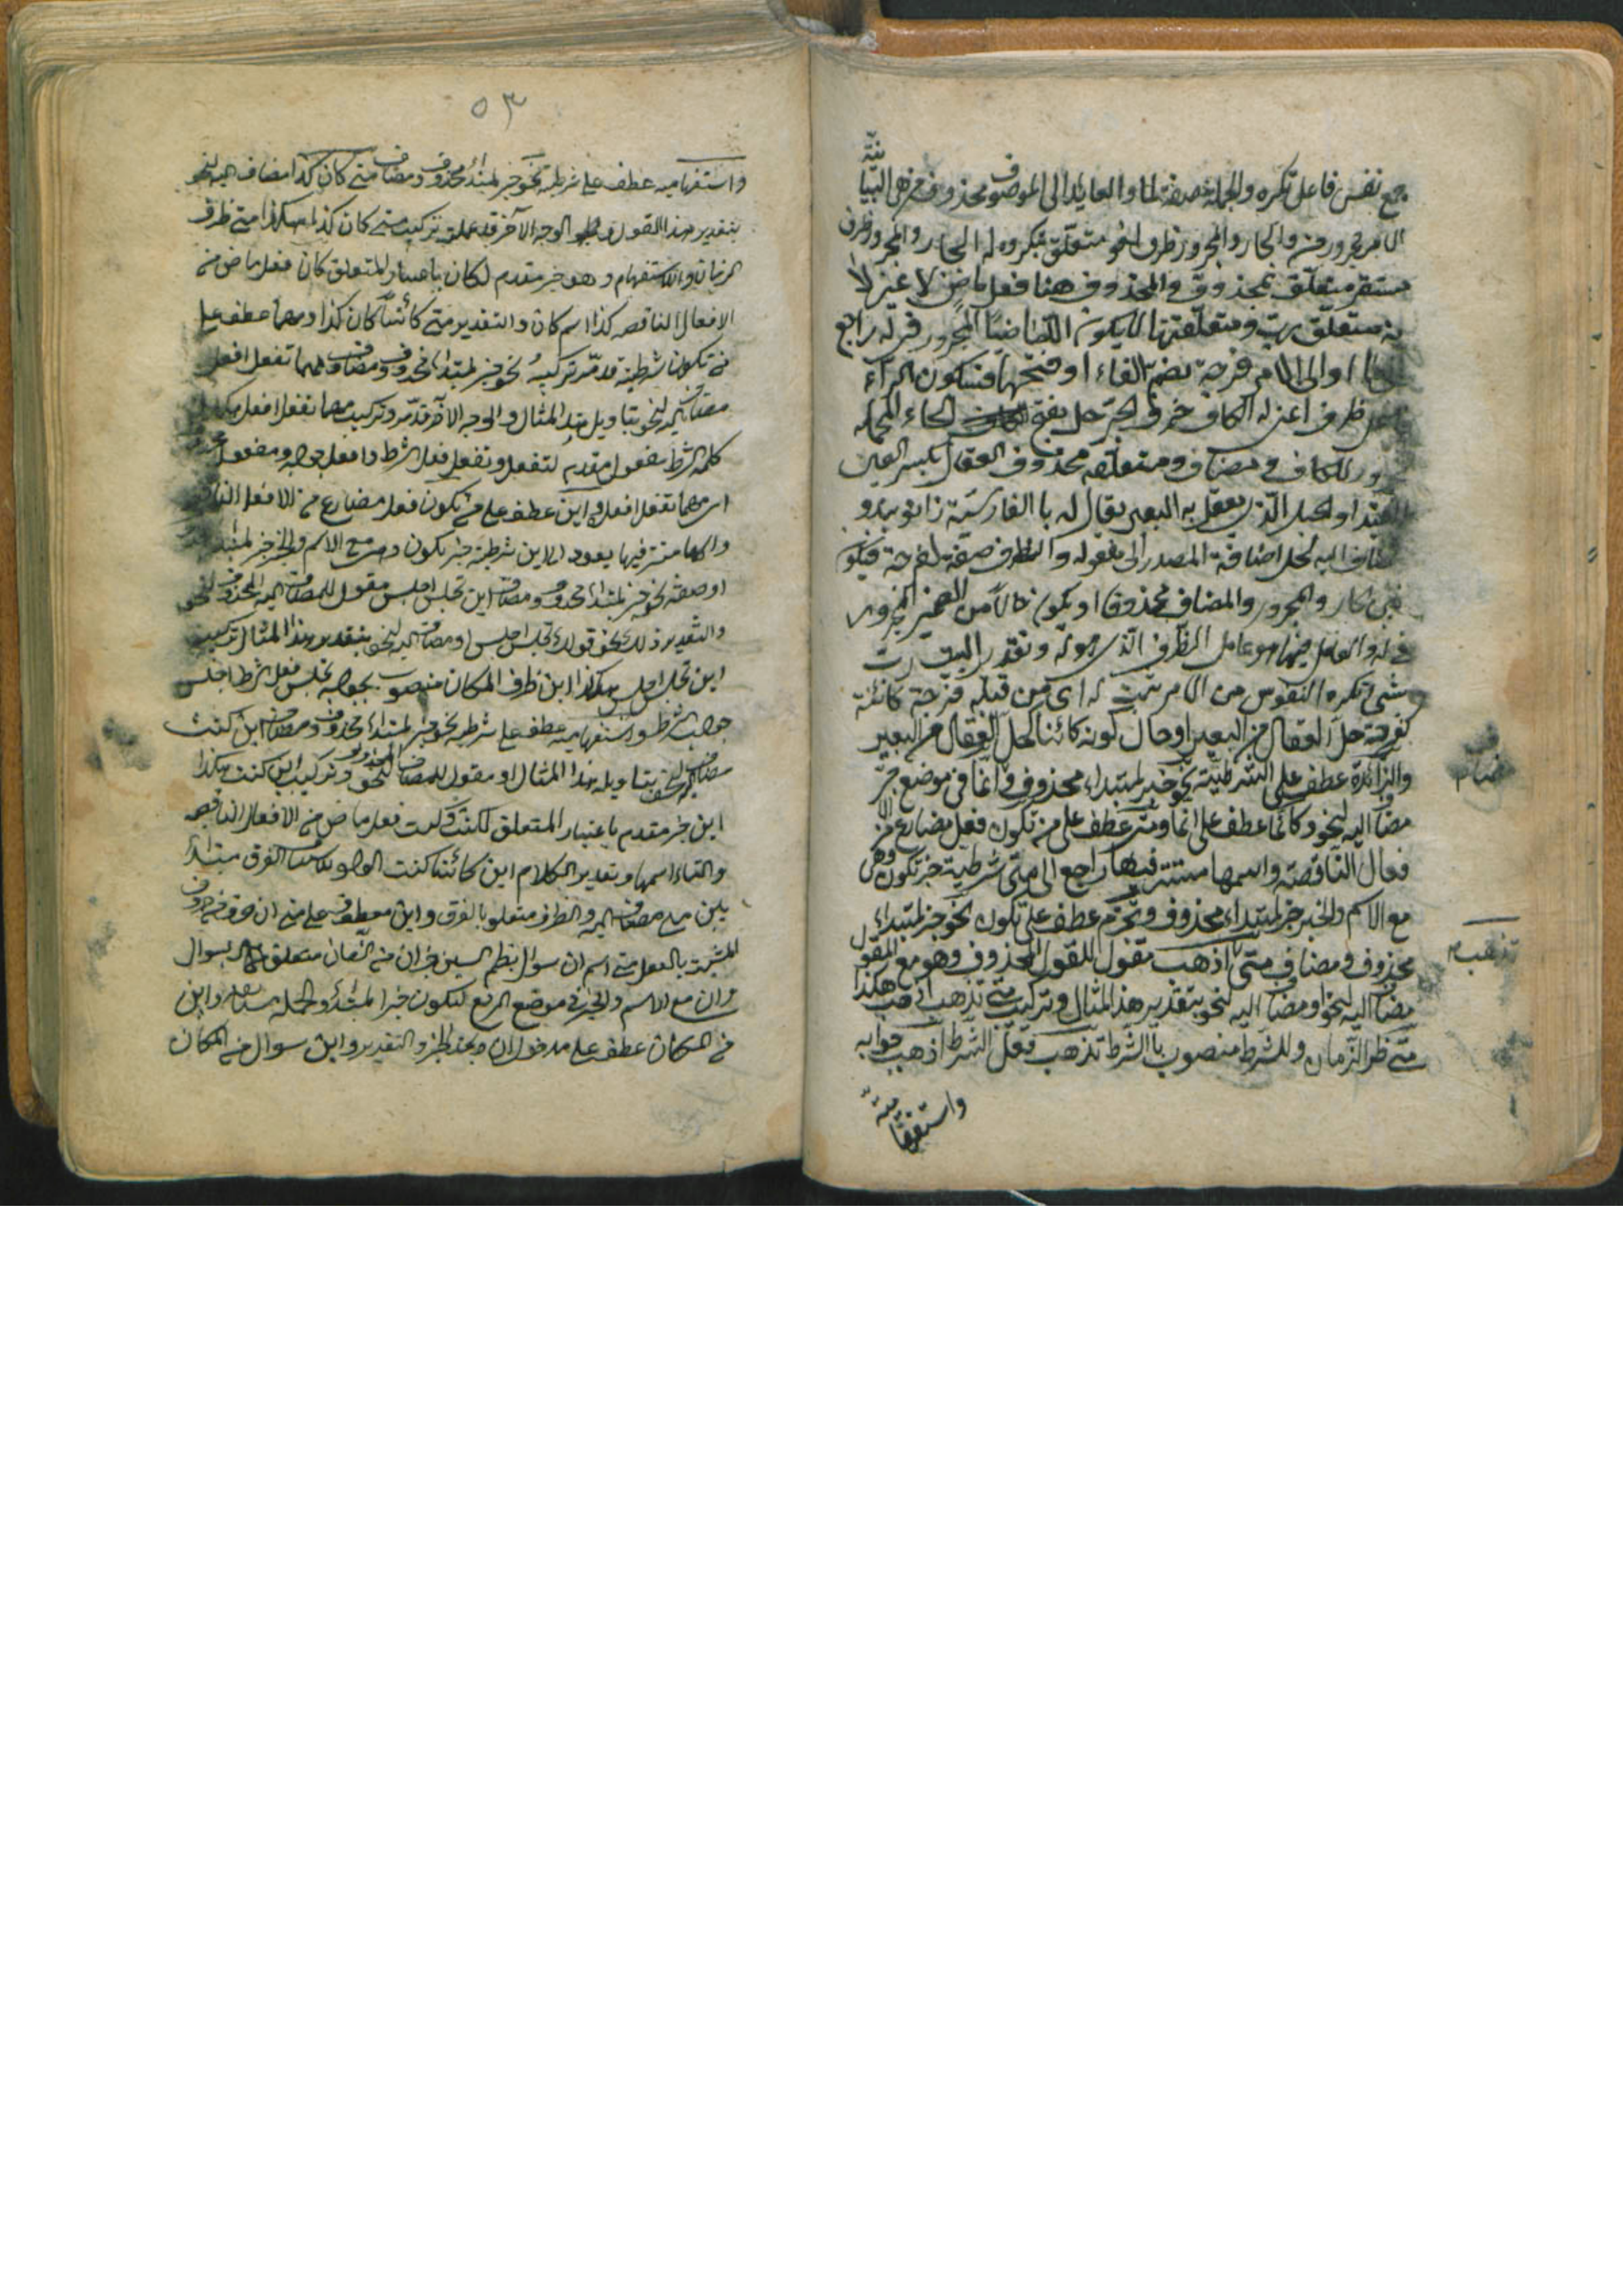 جمع نفس فاعل تكره والجملة صفة لما والعايد الى الموصوف محذوف من هي البيانية
الامر مجرور من والجار والمجرور ظرف لغو متعلق بتكره له الجار والمجرور ظرف
مستقر متعلق بمحذوف والمحذوف هنا فعل ماض لا غير لا
نه متعلق رب ومتعلقتها لا يكون الا ماضيا المجرور في له راجع
او الى الامر فرجة بضم الفاء او فتحها فسكون الراء
ظرف اعني له الكاف حرف الجر حل بفتح الحاء المهملة
ور للكاف ومضاف ومتعلقه محذوف العقال بكسر العين
او لحبل الذي يعقل به البعير يقال له با الفارسية زانو بند و
مضاف اليه لحل اضافة المصدر الى مفعوله والظرف صفة لفرجة فيكو
جار والمجرور والمضاف محذوفا او يكون حالا من الضمير المجرور
في له والعامل فيها هو عامل الظرف الذي هو له وتقدير البيت رب
شيء تكره النفوس من الامر ثبت له اي من قبله فرجة كائنة
كفرجة حل العقال من البعير او حال كونه كائنا كحل العقال من البعير
والزائدة عطف على الشرطية نحو خبر لمبتداء محذوف في انما في موضع جر
مضاف اليه لنحو وكانما عطف على انما ومتى عطف على من تكون فعل مضارع من الا
فعال الناقصة واسمها مستتر فيها راجع الى متى شرطية خبر تكون وهي
مع الاسم والخبر خبر لمبتداء محذوف وتجزم عطف على تكون نحو خبر لمبتداء
محذوف ومضاف متى اذهب مقول للقول المحذوف وهو مع المقول
مضاف اليه لنحو او مضاف اليه لنحو بتقدير هذ المثال وتركيب متى تذهب اذهب هكذا
متى ظر الزمان وللشرط منصوب با الشرط تذهب فعل الشرط اذهب جوابه
واستفهامية
تذهب
٥٣
واستفهامية عطف على شرطية نحو خبر لمبتداء محذوف ومضاف متى كان كذا مضاف اليه لنحو
بتقدير هذا القول الوجه الآخر قد تركيب متى كان كذا هكذا متى ظرف
الزمان والاستفهام وهو خبر مقدم لكان باعتبار المتعلق كان فعل ماض من
الافعال الناقصه كذا اسم كان والتقدير متى كائنا كان كذا ومهما عطف على
من تكون شرطية قد مر تركيبه نحو خبر لمبتداء محذوف ومضاف مهما تفعل افعل
مضاف اليه لنحو بتاويل هذا المثال والوجه الآخر قد مر وتركيب مهما تفعل افعل هكذا
كلمة الشرط مفعول مقدم لتفعل وتفعل فعل الشرط وافعل جوابه ومفعول
اي مهما تفعل افعله اين عطف على من تكون فعل مضارع من الافعال النا
واسمها مستتر فيها يعود الى اين شرطية خبر تكون وهي مع الاسم والخبر خبر لمبتدا
او صفة نحو خبر لمبتداء محذوف ومضاف اين تجلس اجلس مقول للمضاف اليه المحذوف لنحو
والتقدير ذلك نحو قولك تجلس اجلس او مضاف اليه لنحو بتقدير هذا المثال تركيب
اين تجلس اجلس هكذا اين ظرف المكان منصوب بجوابه تجلس فعل الشرط اجلس
جواب الشرط واستفهامية عطف على شرطية نحو خبر لمبتداء محذوف ومضاف اين كنت
مضاف اليه لنحو بتاويله هذا المثال او مقول للمضاف المحذوف لنحو وتركيب اين كنت هكذا
اين خبر مقدم باعتبار المتعلق لكنت وكنت فعل ماض من الافعال الناقصه
والتاء اسمها وتقدير الكلام اين كائنا كنت الفرق مبتدا
بين مع مضاف اليه والظرف متعلق با لفرق واين معطوف على متى ان حرف من حروف
المشبهة بالفعل متى اسم ان سوال بنظم السين خبر ان من الزمان متعلق بسوال
وان مع الاسم والخبر في موضع الرفع لتكون خبرا لمبتداء والجملة واين
من المكان عطف على مدخول ان والتقدير واين سوال من المكان